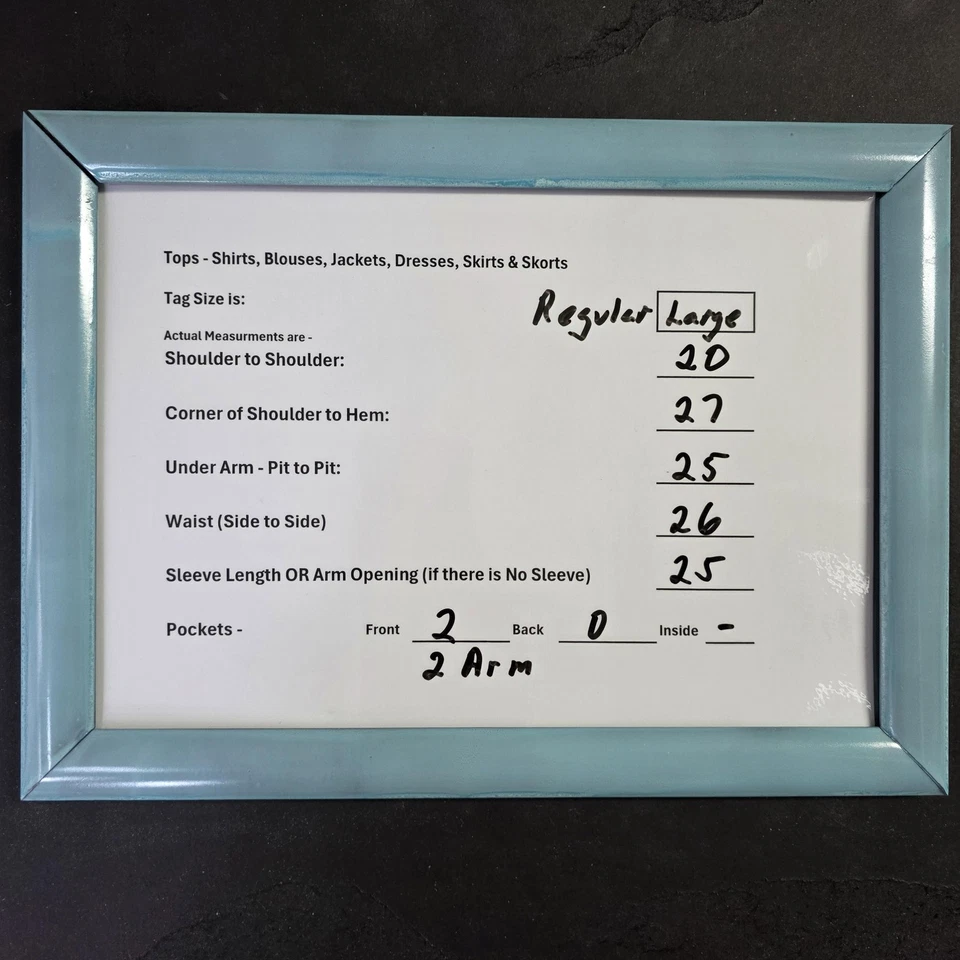 Tops - Shirts, Blouses, Jackets, Dresses, Skirts & Skorts
Tag Size is: Regular Large
Actual Measurments are -
Shoulder to Shoulder: 20
Corner of Shoulder to Hem: 27
Under Arm - Pit to Pit: 25
Waist (Side to Side) 26
Sleeve Length OR Arm Opening (if there is No Sleeve) 25
Pockets - Front 2 Back 0 Inside -
2 Arm